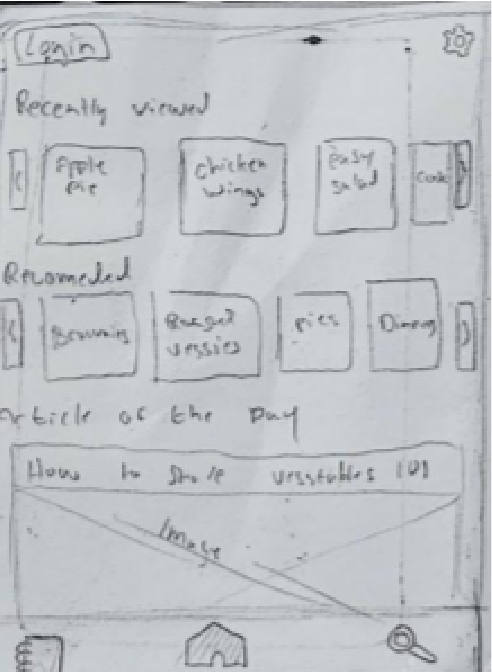 Login
Recently viewed
Apple Pie
Chicken wings
Easy salad
Recomeded
Brownies
veggies
pies
Article of the Day
How to Store vegetables 101
Image